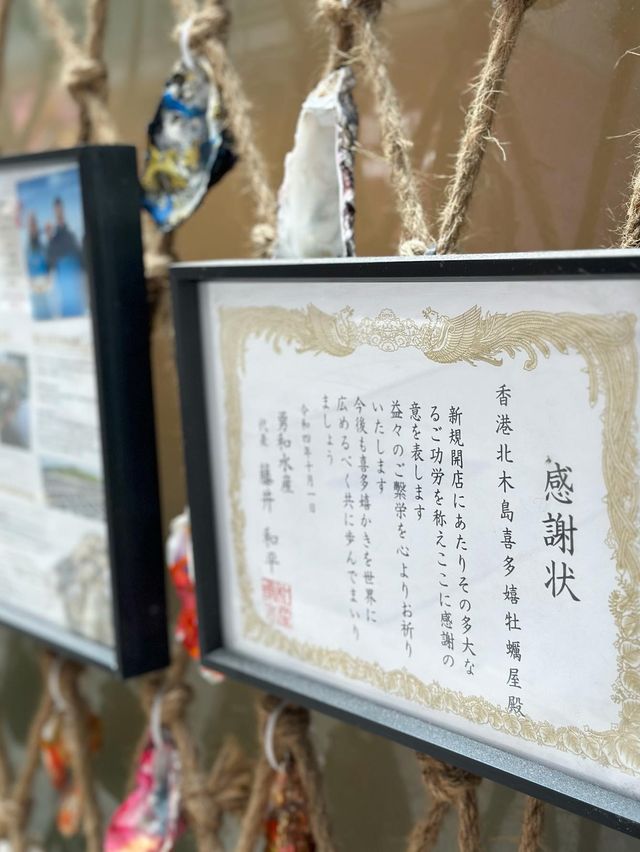 感謝状
香港北木島喜多嬉牡蠣屋殿
新規開店にあたりその多大な
るご功労を称えここに感謝の
意を表します
益々のご繫栄を心よりお祈り
いたします
今後も喜多嬉かきを世界に
広めるべく共に歩んでまいり
ましょう
令和四年十月一日
勇和水産
代表 藤井 和平